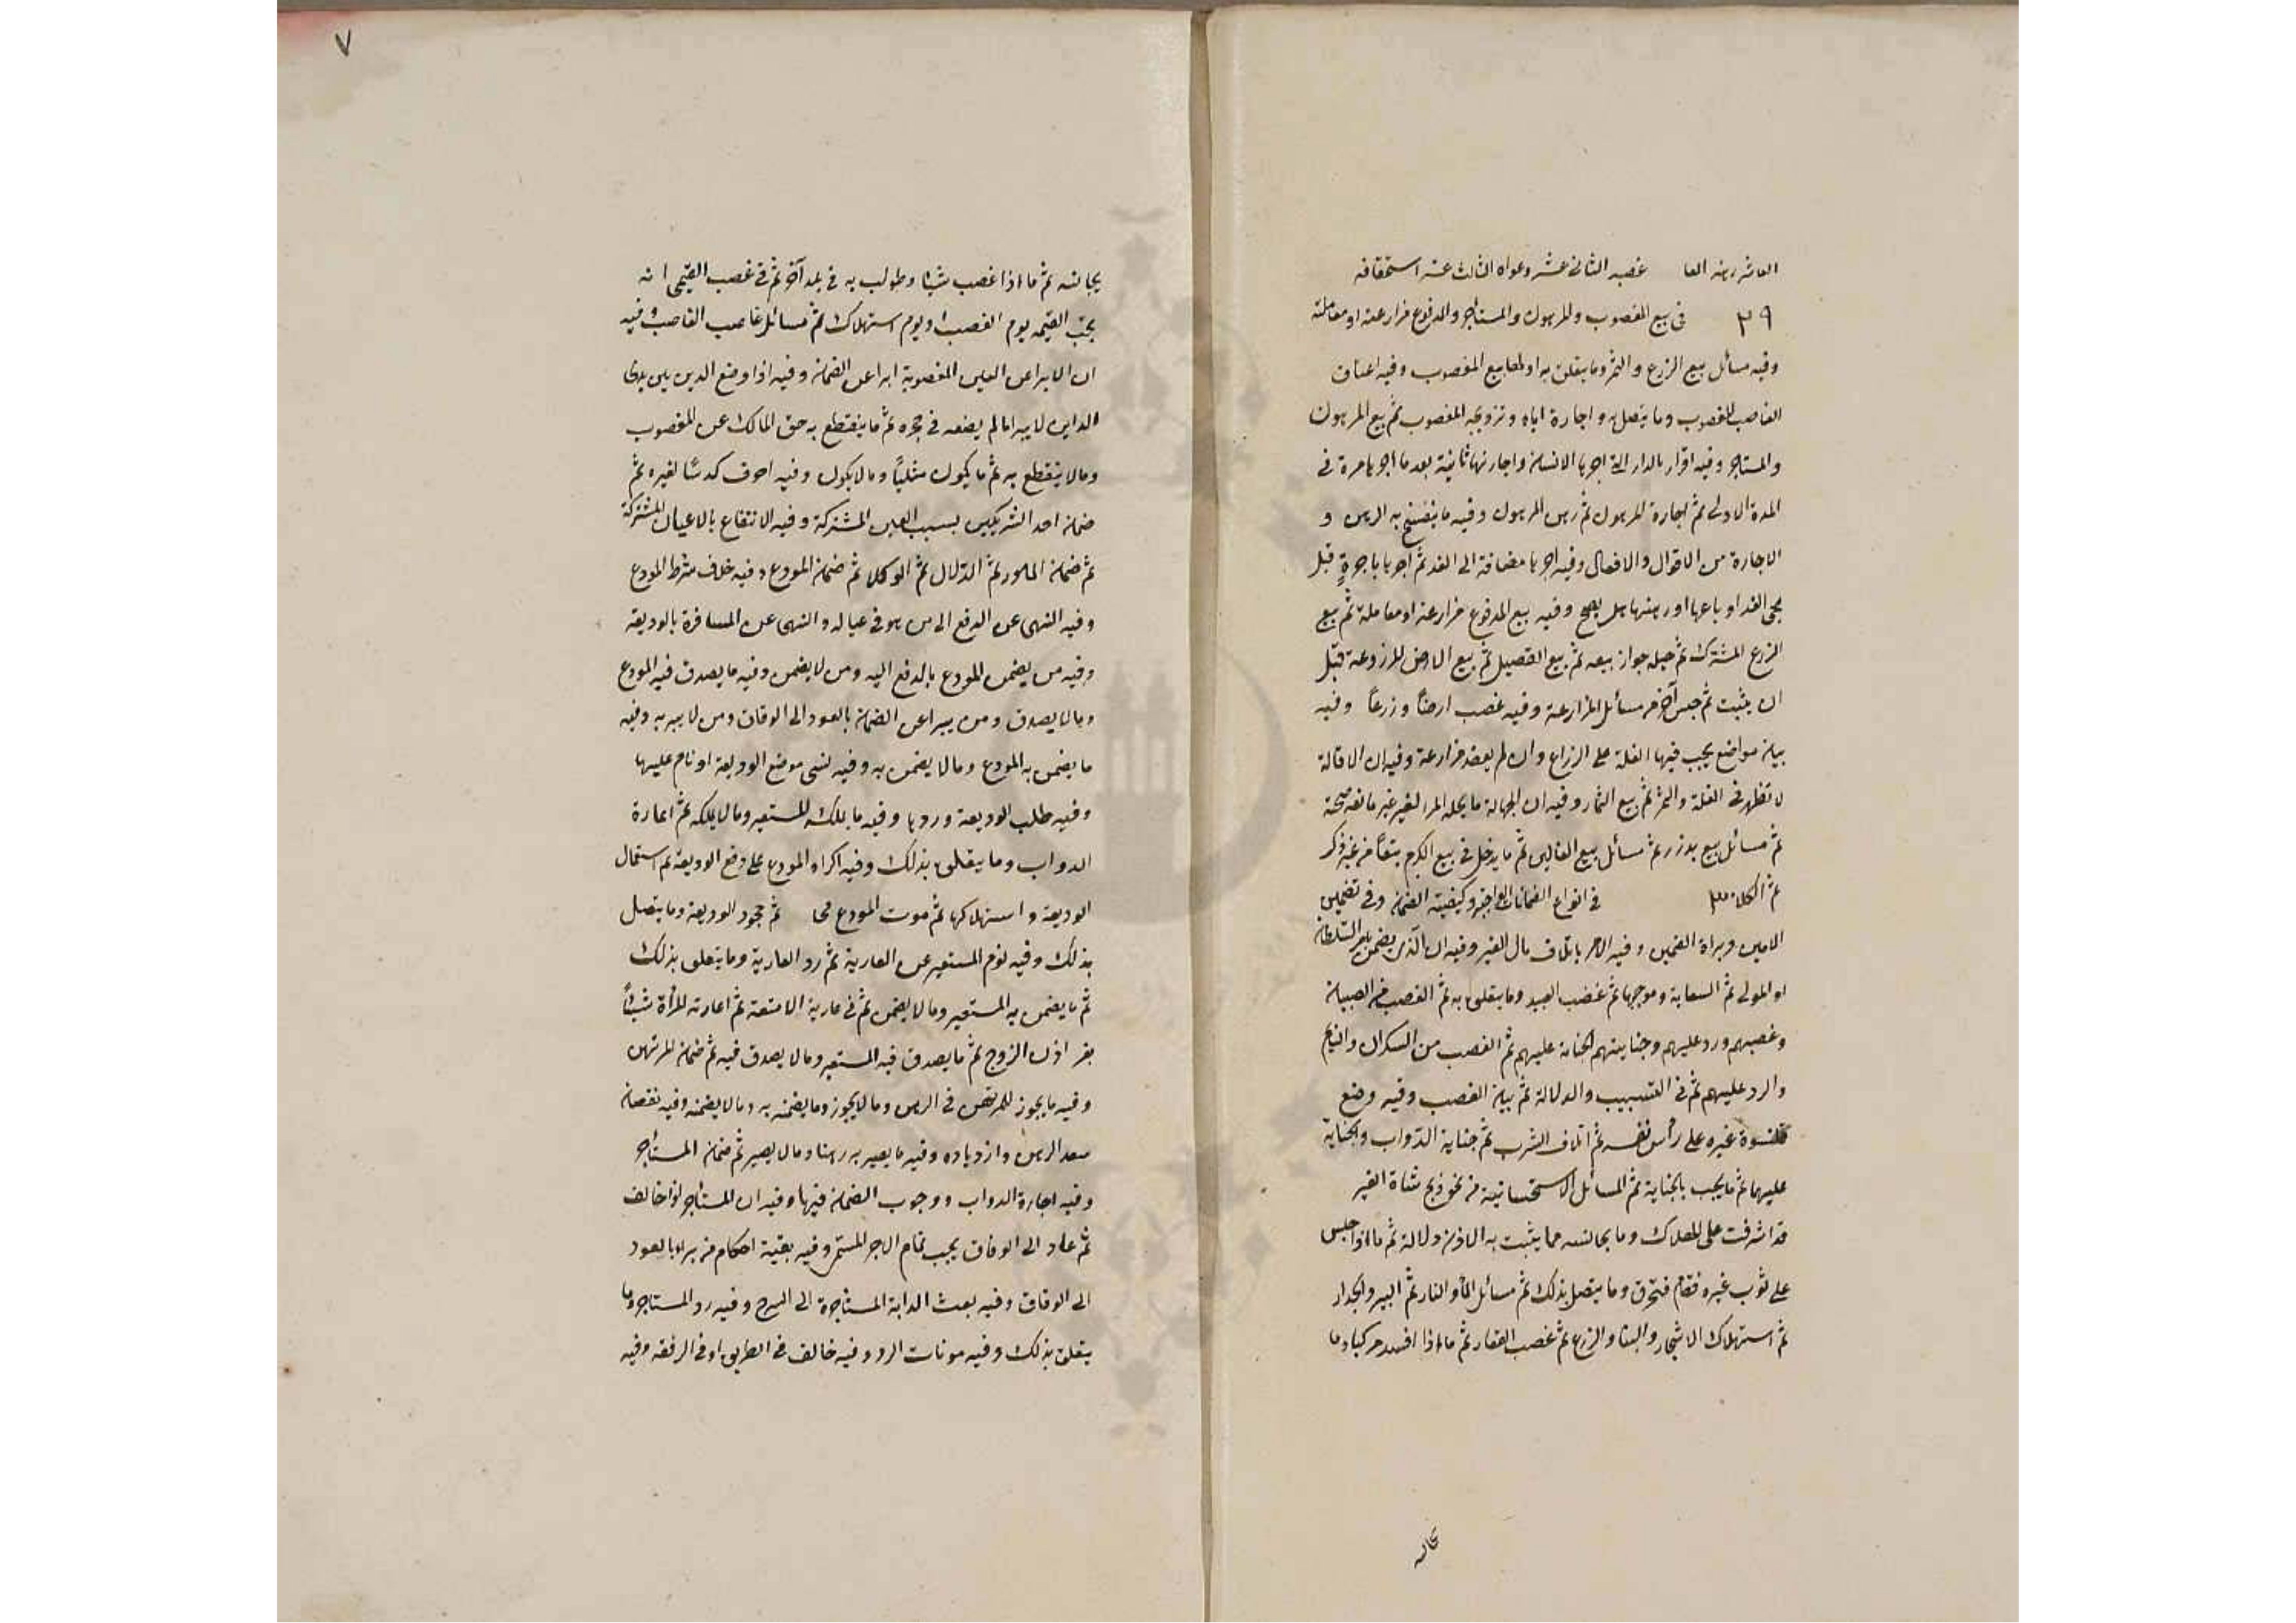 العاشر رهنه العا غصبه الثانى عشر دعواه الثالث عشر استحقاقه
٢٩ فى بيع المغصوب والمرهون والمستاجر والمدفوع مزارعة او معاملة
وفيه مسائل بيع الزرع والثمر وما يتعلق به اولها بيع المغصوب وفيه اعتاق
الغاصب المغصوب وما يتصل به واجارة اياه وتزويجه المغصوب ثم بيع المرهون
والمستاجر وفيه اقرار بالدار التى اجرها لانسان واجارتها ثانية بعد ما آجرها مرة فى
المدة الاولى ثم اجارة المرهون ثم رهن المرهون وفيه ما ينفسخ به الرهن و
الاجارة من الاقوال والافعال وفيه اجرها مضافة الى الغد ثم اجرها باجرة قبل
مجى الغد او باعها او رهنها هل يصح وفيه بيع المدفوع مزارعة او معاملة ثم بيع
الزرع المشترك ثم حيلة جواز بيعه ثم بيع الفصيل ثم بيع الارض المزروعة قبل
ان ينبت ثم جنس آخر من مسائل المزارعة وفيه غصب ارضاً وزرعاً وفيه
بيان مواضع يجب فيها الغلة على الزراع وان لم يعقد مزارعة وفيه ان الاقالة
لا تظهر فى الغلة والثمر ثم بيع الثمار وفيه ان الجهالة ما يحله المرا لغير غير مانعة صحة
ثم مسائل بيع بذر ثم مسائل بيع الفاليز ثم ما يدخل فى بيع الكرم تبعاً من غير ذكر
ثم الكلا ٣٠ فى انواع الضمانات الواجبة وكيفية الضمان وفى تضمين
الامين وبراة الضمين وفيه الامر باتلاف مال الغير وفيه ان الذى يضمن بامر السلطان
او المولى ثم السعاية وموجبها ثم غصب العبيد وما يتعلق به ثم الغصب من الصبيان
وغصبهم ورد عليهم وجنايتهم الجناية عليهم ثم الغصب من السكران والنايم
والرد عليهم ثم فى التسبيب والدلالة ثم بيان الغصب وفيه وضع
قلنسوة غيره على رأس نفسه ثم اتلاف الشرب ثم جناية الدواب والجناية
عليها ثم ما يجب بالجناية ثم المسائل الاستحسانية من نحو ذبح شاة الغير
قد اشرفت على الهلاك وما يجانسه مما يثبت به الاذن دلالة ثم ما اذا جلس
على ثوب غيره فقام فتخرق وما يتصل بذلك ثم مسائل الماء والنار ثم البير والجدار
ثم استهلاك الاشجار والبناء والزرع ثم غصب العقار ثم ما اذا افسد مركبا وما
يجانسه
٧
يجانسه ثم ما اذا غصب شيئا وطولب به فى بلد آخر ثم فى غصب القيمى انه
يجب القيمة يوم الغصب او يوم استهلاك ثم مسائل غاصب الغاصب وفيه
ان الابرا عن العين المغصوبة ابرا عن الضمان وفيه اذا وضع الدين بين يدى
الداين لا يبرا ما لم يضعه فى حجره ثم ما ينقطع به حق المالك عن المغصوب
وما لا ينقطع به ثم ما يكون مثلياً وما لا يكون وفيه احرق كدساً لغيره ثم
ضمان احد الشريكين بسبب العين المشتركة وفيه الانتفاع بالاعيان المشتركة
ثم ضمان المامور ثم الدلال ثم الوكلا ثم ضمان المودع وفيه خلاف شرط المودع
وفيه النهى عن الدفع الى من هو فى عياله والنهى عن المسافرة بالوديعة
وفيه من يضمن المودع بالدفع اليه ومن لا يضمن وفيه ما يصدق فيه المودع
وما لا يصدق ومن يبرا عن الضمان بالعود الى الوفاق ومن لا يبر به وفيه
ما يضمن به المودع وما لا يضمن به وفيه نسى موضع الوديعة او نام عليها
وفيه طلب الوديعة وردها وفيه ما يملك المستعير وما لا يملكه ثم اعارة
الدواب وما يتعلق بذلك وفيه اكراه المودع على دفع الوديعة ثم استعمال
الوديعة واستهلاكها ثم موت المودع مجهلا ثم جحود الوديعة وما يتصل
بذلك وفيه نوم المستعير عن العارية ثم رد العارية وما يتعلق بذلك
ثم ما يضمن به المستعير وما لا يضمن ثم فى عارية الامتعة ثم اعارته المرأة شيئاً
بغير اذن الزوج ثم ما يصدق فيه المستعير وما لا يصدق فيه ثم ضمان المرتهن
وفيه ما يجوز للمرتهن فى الرهن وما لا يجوز وما يضمنه به وما لا يضمنه وفيه نقصان
سعر الرهن وازدياده وفيه ما يصير به رهنا وما لا يصير ثم ضمان المستأجر
وفيه اجارة الدواب ووجوب الضمان فيها وفيه ان المستأجر لو خالف
ثم عاد الى الوفاق يجب تمام الاجر المستمر وفيه بقية احكام من يبرا بالعود
الى الوفاق وفيه بعث الدابة المستأجرة الى السرح وفيه رد المستاجر وما
يتعلق بذلك وفيه مونات الرد وفيه خالف فى الطريق او فى الرفقة وفيه